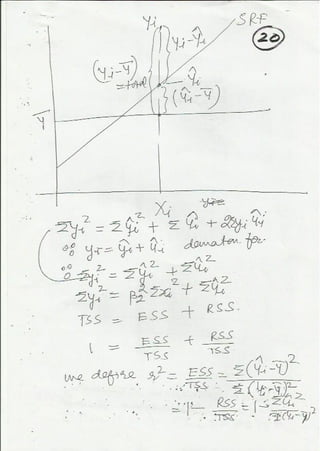 Yi
SRF
20
Yi-Ŷi
(Yi-Ȳ)
= total
Ŷi
(Ŷi-Ȳ)
Ȳ
Xi
Σyi² = Σŷi² + Σûi² + 2Σŷiûi
∵ yi = ŷi + ûi deviation for
∴ Σyi² = Σŷi² + Σûi²
Σyi² = β̂2² Σxi² + Σûi²
TSS = ESS + RSS.
1 = ESS/TSS + RSS/TSS
we define r² = ESS/TSS = Σ(Ŷi-Ȳ)²/Σ(Yi-Ȳ)²
= 1- RSS/TSS = 1- Σûi²/Σ(Yi-Ȳ)²